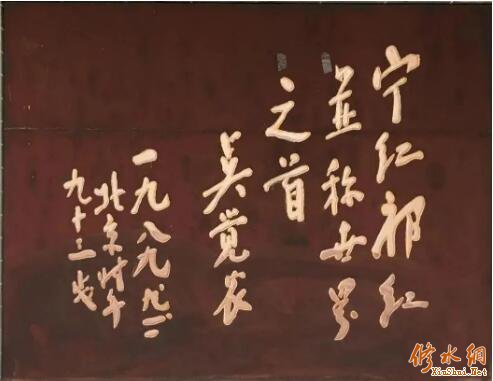 宁红祁红
並称世界
之首
吴觉农
一九八九.九.二.
北京时年
九十三岁
修水網
XiuShui.Net